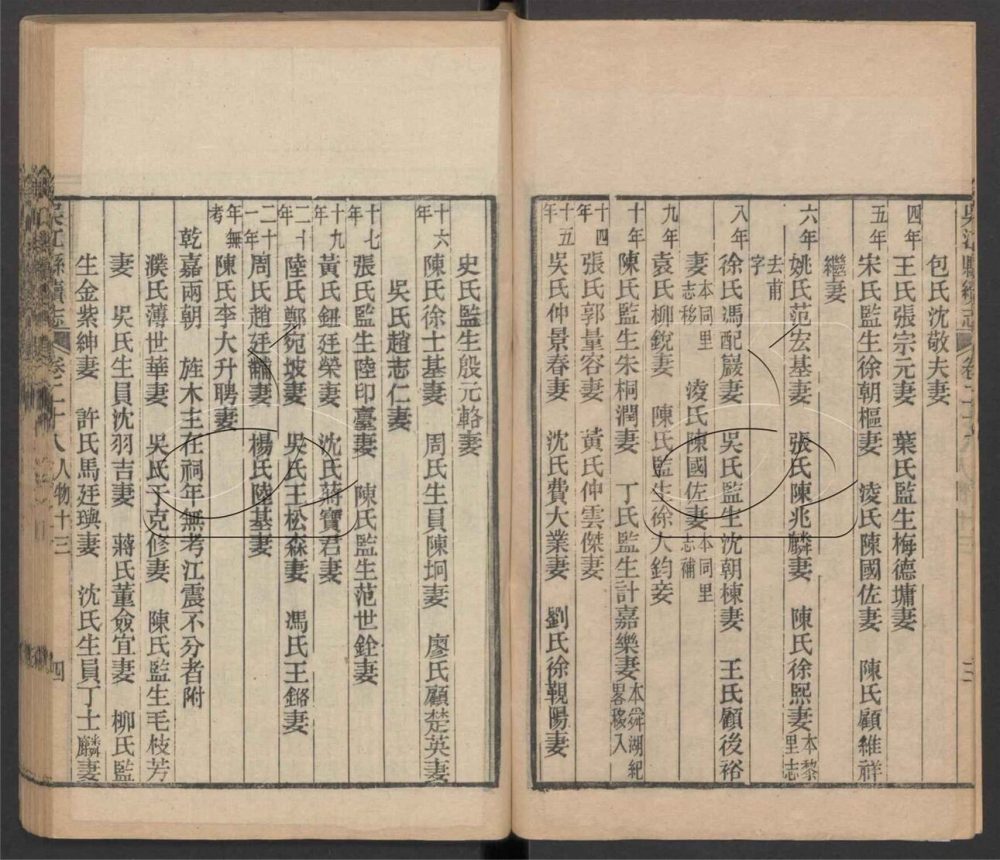 包氏沈敬夫妻
四年　王氏張宗元妻　葉氏監生梅德墉妻
五年　宋氏監生徐朝樞妻　淩氏陳國佐妻　陳氏顧維祥
繼妻
六年　姚氏范宏基妻　張氏陳兆麟妻　陳氏徐熙妻本黎里志
去甫字
八年　徐氏馮配巖妻　吳氏監生沈朝棟妻　王氏顧後裕
妻本同里志移　淩氏陳國佐妻本同里志補
九年　袁氏柳銳妻　陳氏監生徐大鈞妾
十年　陳氏監生朱桐潤妻　丁氏監生計嘉樂妻本舜湖紀畧移入
十四年　張氏郭量容妻　黃氏仲雲傑妻
十五年　吳氏仲景春妻　沈氏費大業妻　劉氏徐覲陽妻
史氏監生殷元輅妻
十六年　陳氏徐士基妻　周氏生員陳坰妻　廖氏顧楚英妻
吳氏趙志仁妻
十七年　張氏監生陸印臺妻　陳氏監生范世銓妻
十九年　黃氏鈕廷榮妻　沈氏蔣寶君妻
二十年　陸氏鄭宛坡妻　吳氏王松森妻　馮氏王鉻妻
二十一年　周氏趙廷黼妻　楊氏陸基妻
年無考　陳氏李大升聘妻
乾嘉兩朝　旌木主在祠年無考江震不分者附
濮氏薄世華妻　吳氏丁克修妻　陳氏監生毛枝芳
妻　吳氏生員沈羽吉妻　蔣氏董僉宜妻　柳氏監
生金紫紳妻　許氏馬廷璵妻　沈氏生員丁士麟妻
吳江縣續志　卷二十八人物十三　四